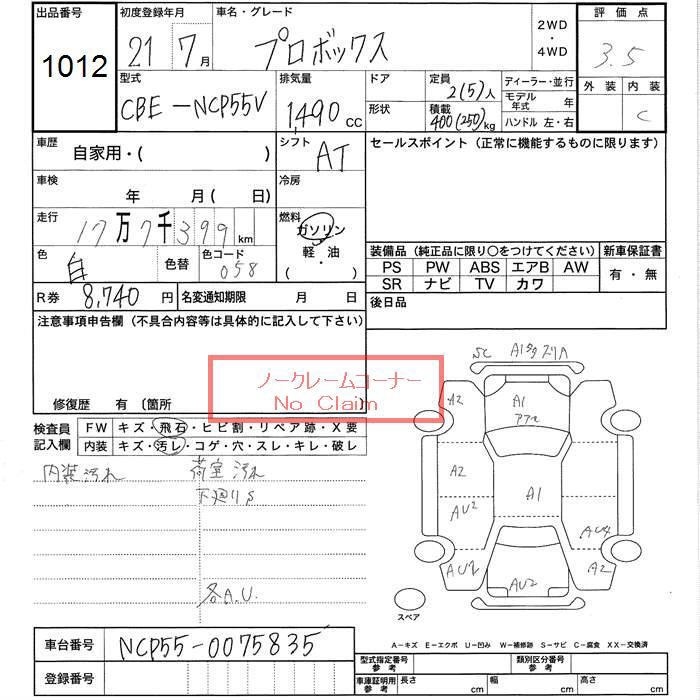 出品番号 初度登録年月 車名・グレード 評価点
1012 21 7月 プロボックス 2WD・4WD 3.5
外装 内装
C
型式 排気量 ドア 定員 2(5)人 ディーラー・並行
CBE-NCP55V 1,490 cc 形状 積載 400(250)kg モデル年式 年
ハンドル 左・右
車歴 自家用・( ) シフト AT セールスポイント（正常に機能するものに限ります）
車検 年 月( 日) 冷房
走行 17万7千399km 燃料 ガソリン・軽油 ( )
色 白 色替 色コード 058
装備品（純正品に限り○をつけてください） 新車保証書
PS PW ABS エアB AW 有・無
SR ナビ TV カワ
R券 8,740円 名変通知期限 月 日 後日品
注意事項申告欄（不具合内容等は具体的に記入して下さい）
ノークレームコーナー
No Claim
修復歴 有〔箇所 〕
検査員記入欄 FW キズ・飛石・ヒビ割・リペア跡・X要
内装 キズ・汚レ・コゲ・穴・スレ・キレ・破レ
内装汚れ 荷室汚れ
下廻りS
各A.U.
SC A1
A2 A1
A2 A1
AU2 AU4
AU2 AU2 A2
スペア
A－キズ E－エクボ U－凹み W－補修跡 S－サビ C－腐食 XX－交換済
車台番号 NCP55-0075835
登録番号
型式指定番号参考 類別区分番号参考
車庫証明用参考 長さ cm 幅 cm 高さ cm